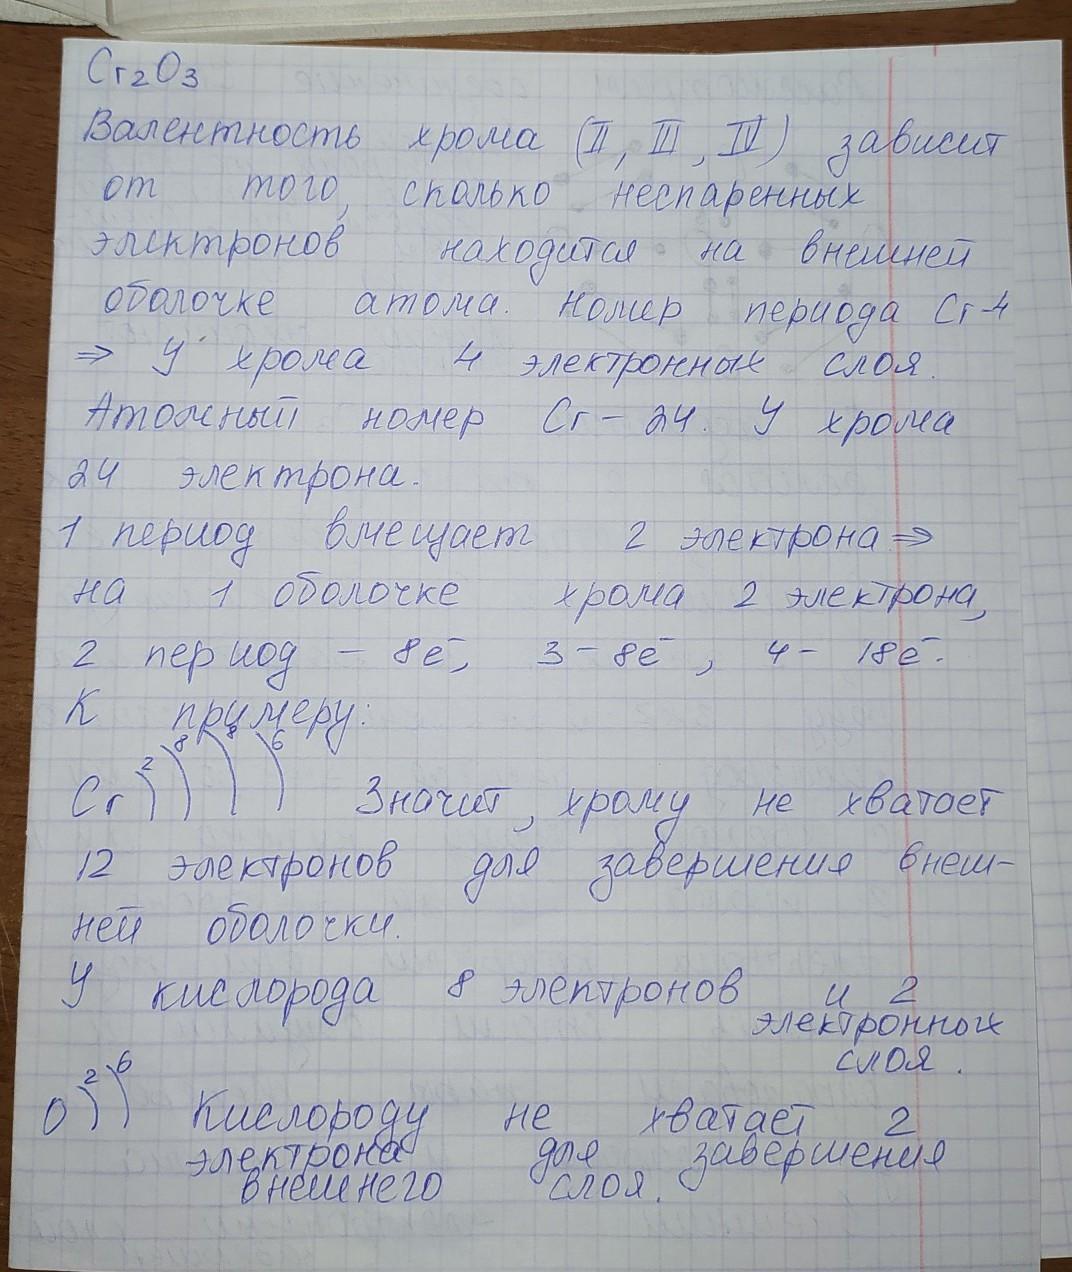 Cr₂O₃
Валентность хрома (II, III, IV) зависит
от того, сколько неспаренных
электронов находится на внешней
оболочке атома. Номер периода Cr-4
⇒ У хрома 4 электронных слоя.
Атомный номер Cr – 24. У хрома
24 электрона.
1 период вмещает 2 электрона ⇒
на 1 оболочке хрома 2 электрона,
2 период – 8e⁻, 3 – 8e⁻, 4 – 18e⁻.
К примеру:
Cr ²) ⁸) ⁸) ⁶) Значит, хрому не хватает
12 электронов для завершения внеш-
ней оболочки.
У кислорода 8 электронов и 2
электронных
слоя.
O ²) ⁶) Кислороду не хватает 2
электрона для завершения
внешнего слоя.